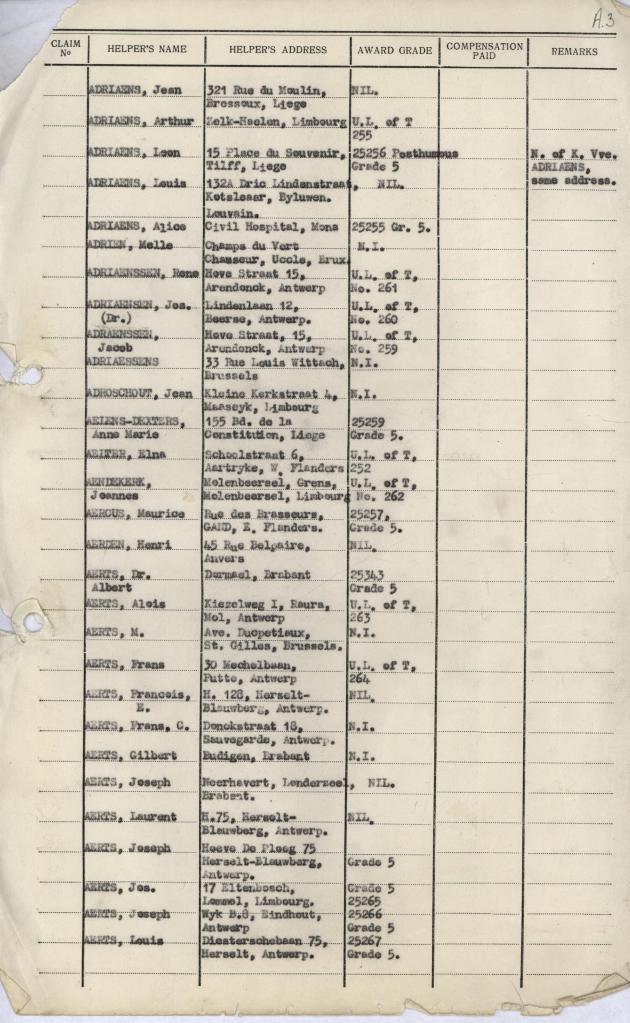 A.3
CLAIM No HELPER'S NAME HELPER'S ADDRESS AWARD GRADE COMPENSATION PAID REMARKS
ADRIAENS, Jean 321 Rue du Moulin, NIL.
Bressoux, Liege
ADRIAENS, Arthur Zelk-Haelen, Limbourg U.L. of T
255
ADRIAENS, Leon 15 Place du Souvenir, 25256 Posthumous N. of K. Vve.
Tilff, Liege Grade 5 ADRIAENS,
ADRIAENS, Louis 132A Dric Lindenstraat, NIL. same address.
Kotsleaar, Byluwen.
Louvain.
ADRIAENS, Alice Civil Hospital, Mons 25255 Gr. 5.
ADRIEN, Melle Champs du Vert N.I.
Chasseur, Uccle, Brux.
ADRIAENSSEN, Rene Hove Straat 15, U.L. of T,
Arendonck, Antwerp No. 261
ADRIAENSEN, Jos. Lindenlaan 12, U.L. of T,
(Dr.) Beerse, Antwerp. No. 260
ADRAENSSEN, Hove Straat, 15, U.L. of T,
Jacob Arendonck, Antwerp No. 259
ADRIAESSENS 33 Rue Louis Wittach, N.I.
Brussels
ADROSCHOUT, Jean Kleine Kerkstraat 4, N.I.
Maaseyk, Limbourg
AELENS-DEXTERS, 155 Bd. de la 25259
Anne Marie Constitution, Liege Grade 5.
AEITER, Elna Schoolstraat 6, U.L. of T,
Aartryke, W. Flanders 252
AENDEKERK, Molenbeersel, Grens, U.L. of T,
Joannes Molenbeersel, Limbourg No. 262
AERCUS, Maurice Rue des Brasseurs, 25257,
GAND, E. Flanders. Grade 5.
AERDEN, Henri 45 Rue Belpaire, NIL.
Anvers
AERTS, Dr. Dormael, Brabant 25343
Albert Grade 5
AERTS, Alois Kiezelweg I, Raura, U.L. of T,
Mol, Antwerp 263
AERTS, M. Ave. Ducpetiaux, N.I.
St. Gilles, Brussels.
AERTS, Frans 30 Mechelbaan, U.L. of T,
Putte, Antwerp 264
AERTS, Francois, H. 128, Herselt- NIL.
E. Blauwberg, Antwerp.
AERTS, Frans, C. Donckstraat 18, N.I.
Sauvegarde, Antwerp.
AERTS, Gilbert Budigen, Brabant N.I.
AERTS, Joseph Neerhavert, Londerzeel, NIL.
Brabant.
AERTS, Laurent H.75, Herselt- NIL.
Blauwberg, Antwerp.
AERTS, Joseph Hoeve De Ploeg 75
Herselt-Blauwberg, Grade 5
Antwerp.
AERTS, Jos. 17 Eltenbosch, Grade 5
Lommel, Limbourg. 25265
AERTS, Joseph Wyk B.8, Eindhout, 25266
Antwerp Grade 5
AERTS, Louis Diesterschebaan 75, 25267
Herselt, Antwerp. Grade 5.